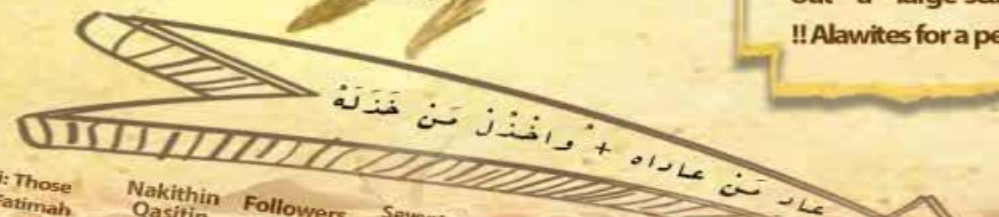 !! Alawites for a pe
عاد مَنْ عاداه + واخْذُلْ مَنْ خَذَلَهْ
Those
Fatimah
Nakithin
Qasitin
Followers